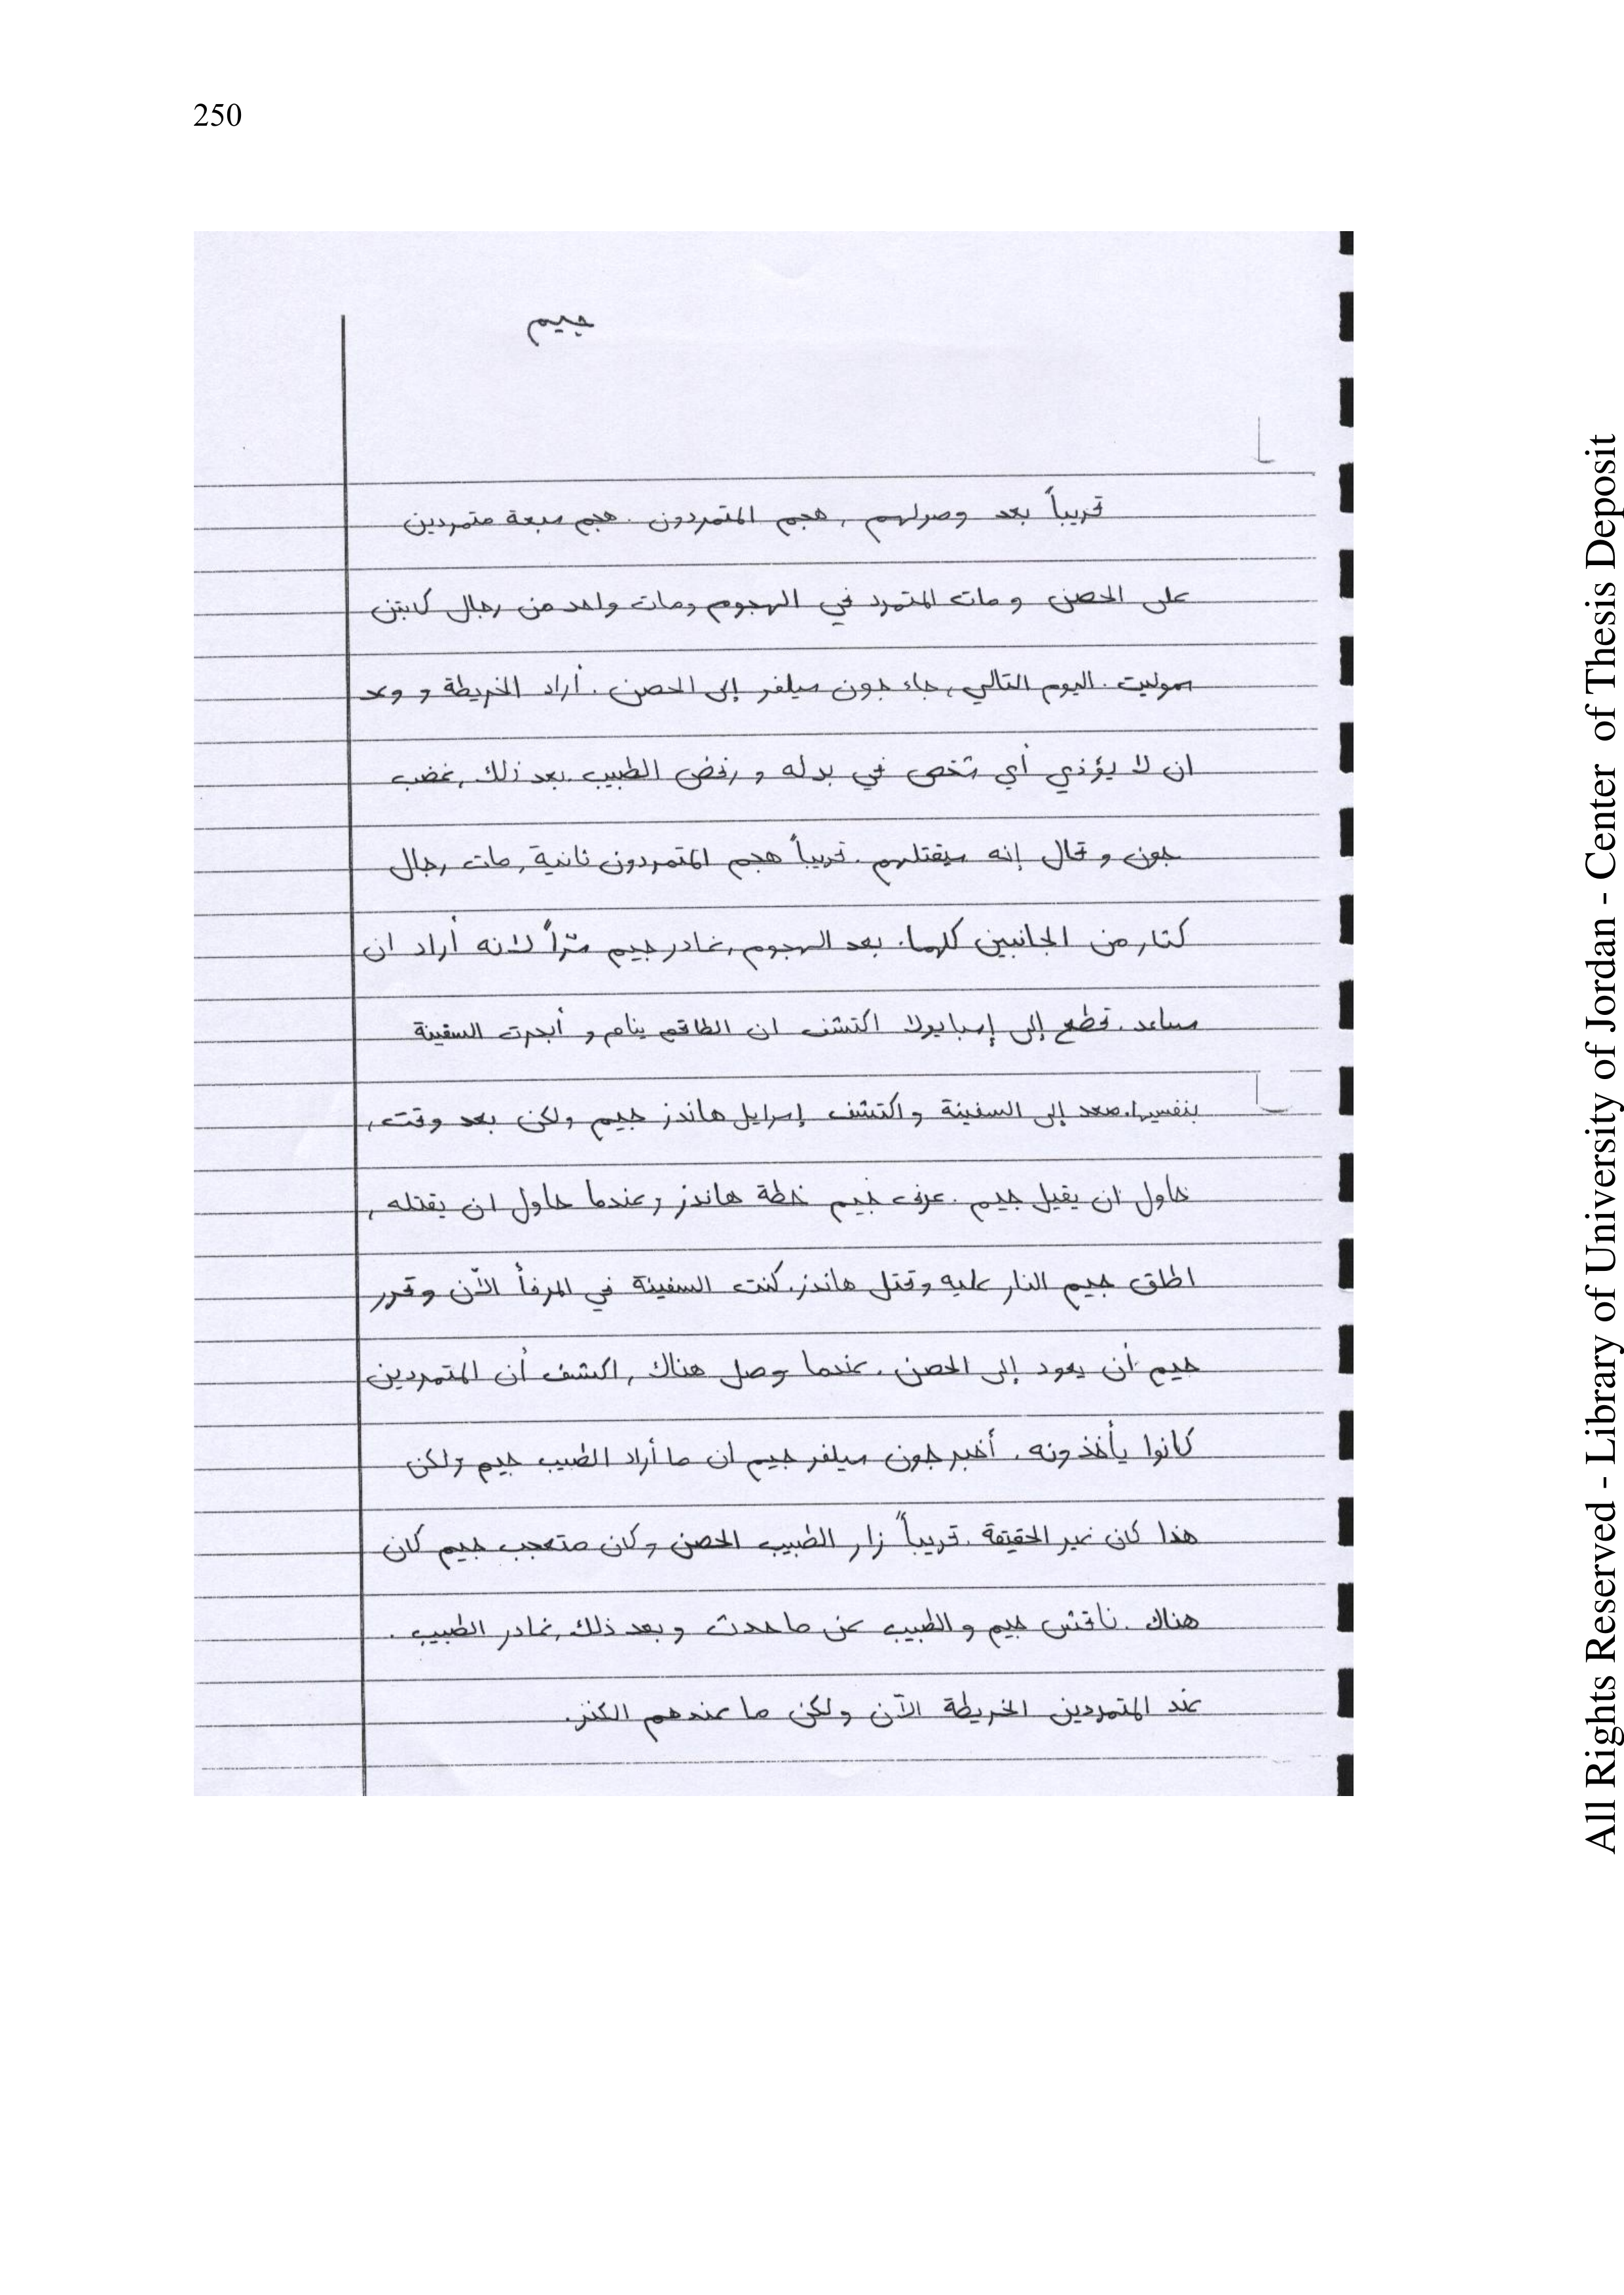 250
جيم
تحريباً بعد وصولهم , هجم المتمردون . هجم سبعة متمردين
على الحصن و مات المتمرد في الهجوم ومات واحد من رجال كابتن
سموليت . اليوم التالي , جاء جون سيلفر إلى الحصن . أراد الخريطة و وعد
ان لا يؤذي أي شخص في بدله و رفض الطبيب . بعد ذلك , غضب
جون و قال إنه سيقتلهم . قريباً هجم المتمردون ثانية , مات رجال
كثار من الجانبين كلهما . بعد الهجوم , غادر جيم سرّاً لانه أراد ان
يساعد . قطع إلى إسبايولا اكتشف ان الطاقم ينام و أبحرت السفينة
بنفسها . صعد إلى السفينة و اكتشف إسرايل هاندز جيم ولكن بعد وقت ,
حاول ان يقيل جيم . عرف جيم خطة هاندز و عندما حاول ان يقتله ,
اطلق جيم النار عليه وقتل هاندز . كنت السفينة في المرفأ الآن وقرر
جيم أن يعود إلى الحصن . عندما وصل هناك , اكشف أن المتمردين
كانوا يأخذونه . أخبر جون سيلفر جيم ان ما أراد الطبيب جيم ولكن
هذا كان غير الحقيقة . قريباً زار الطبيب الحصن وكان متعجب جيم كان
هناك . ناقش جيم و الطبيب عن ما حدث و بعد ذلك , غادر الطبيب .
عند المتمردين الخريطة الآن ولكن ما عندهم الكنز .
All Rights Reserved - Library of University of Jordan - Center of Thesis Deposit